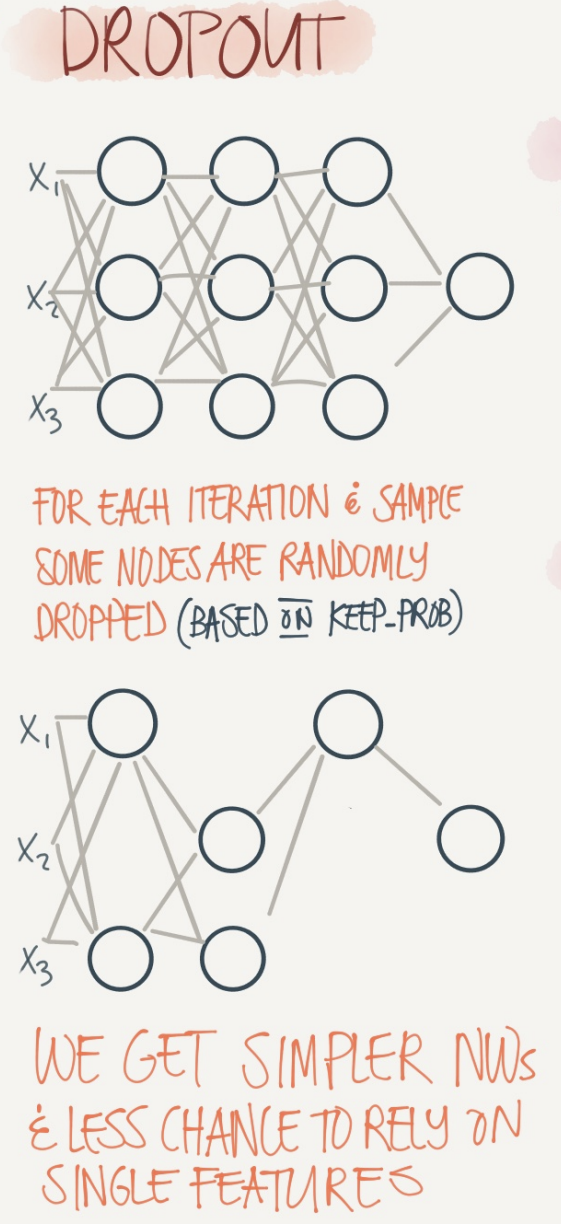 DROPOUT
X1
X2
X3
FOR EACH ITERATION & SAMPLE
SOME NODES ARE RANDOMLY
DROPPED (BASED ON KEEP_PROB)
X1
X2
X3
WE GET SIMPLER NWs
& LESS CHANCE TO RELY ON
SINGLE FEATURES